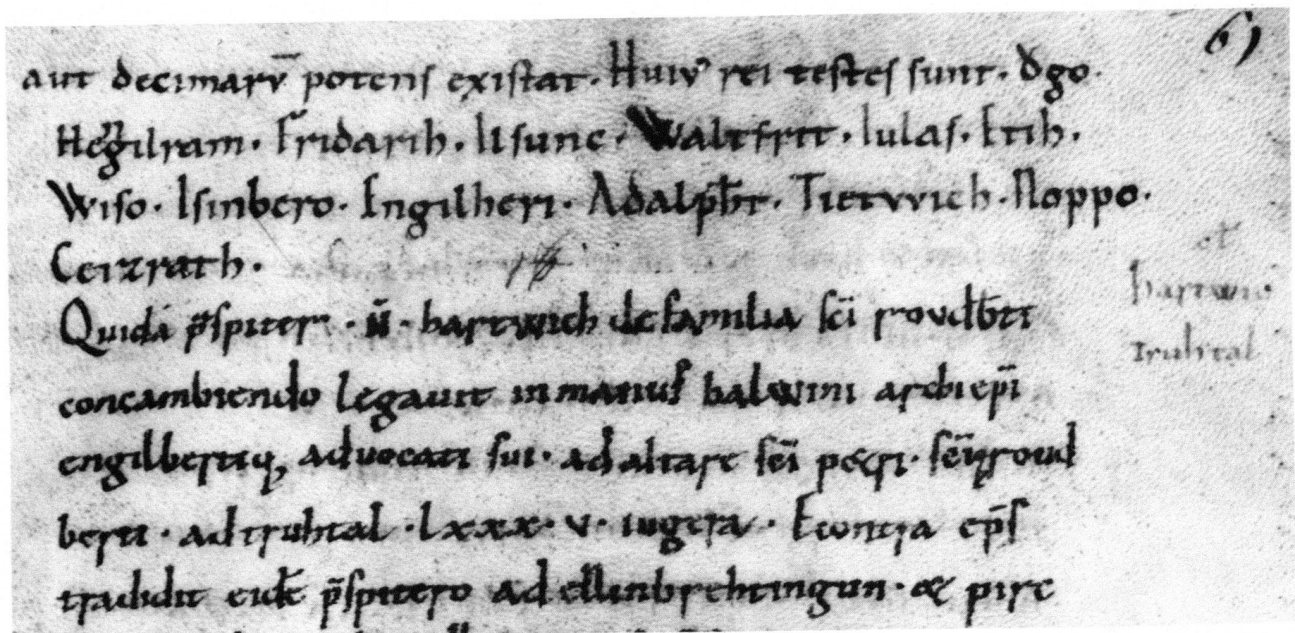 61
aut decimarū potens existat. Huiꝰ rei testes sunt. Ogo.
Hegilram. Fridarih. Lisunc. Waltfrit. Iulas. Etih.
Wiso. Isinbero. Engilheri. Adalpħt. Tietwich. Noppo.
Ceizrath.
Quidā p̄sbiter. n̄. hartwich de familia sc̄i roudb̄ti
concambiendo legauit in manus balwini archiep̄i
engilbertiq; aduocati sui. ad altare sc̄i petri. sc̄iq; roud
berti. ad truhtal. lxxx. v. iugera. Econtra ep̄s
tradidit eidē p̄sbitero ad ellinbrehtingun. & pirc
hartwic
truhtal